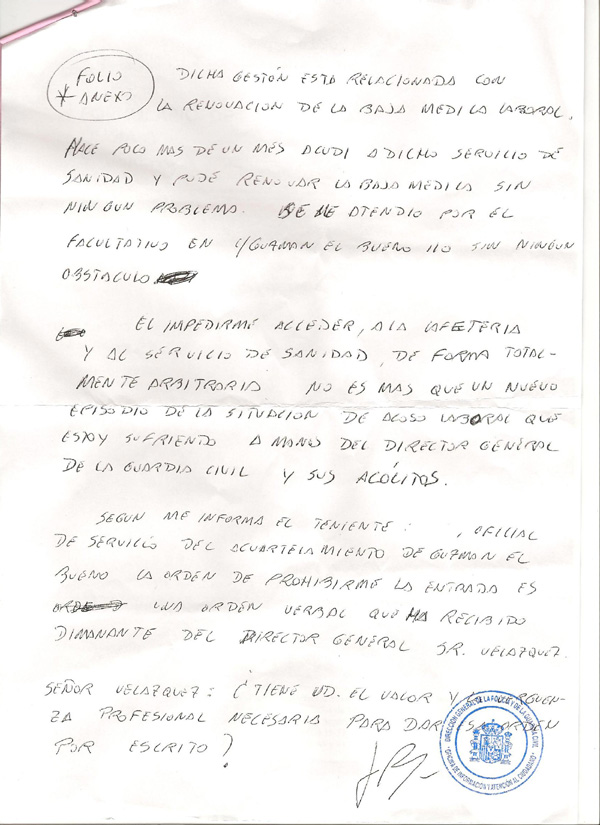 FOLIO
* ANEXO
DICHA GESTIÓN ESTA RELACIONADA CON
LA RENOVACION DE LA BAJA MEDICA LABORAL.
HACE POCO MAS DE UN MES ACUDI A DICHO SERVICIO DE
SANIDAD Y PUDE RENOVAR LA BAJA MEDICA SIN
NINGUN PROBLEMA. SE ME ATENDIO POR EL
FACULTATIVO EN C/GUZMAN EL BUENO 110 SIN NINGUN
OBSTACULO
EL IMPEDIRME ACCEDER, A LA CAFETERIA
Y AL SERVICIO DE SANIDAD, DE FORMA TOTAL-
MENTE ARBITRARIA NO ES MAS QUE UN NUEVO
EPISODIO DE LA SITUACION DE ACOSO LABORAL QUE
ESTOY SUFRIENTO A MANOS DEL DIRECTOR GENERAL
DE LA GUARDIA CIVIL Y SUS ACÓLITOS.
SEGUN ME INFORMA EL TENIENTE : , OFICIAL
DE SERVICIO DEL ACUARTELAMIENTO DE GUZMAN EL
BUENO LA ORDEN DE PROHIBIRME LA ENTRADA ES
UNA ORDEN VERBAL QUE HA RECIBIDO
DIMANANTE DEL DIRECTOR GENERAL SR. VELAZQUEZ.
SEÑOR VELAZQUEZ: ¿TIENE UD. EL VALOR Y
ZA PROFESIONAL NECESARIA PARA DAR ORDEN
POR ESCRITO?
DIRECCIÓN GENERAL DE LA POLICÍA Y DE LA GUARDIA CIVIL
OFICINA DE INFORMACIÓN Y ATENCIÓN AL CIUDADANO